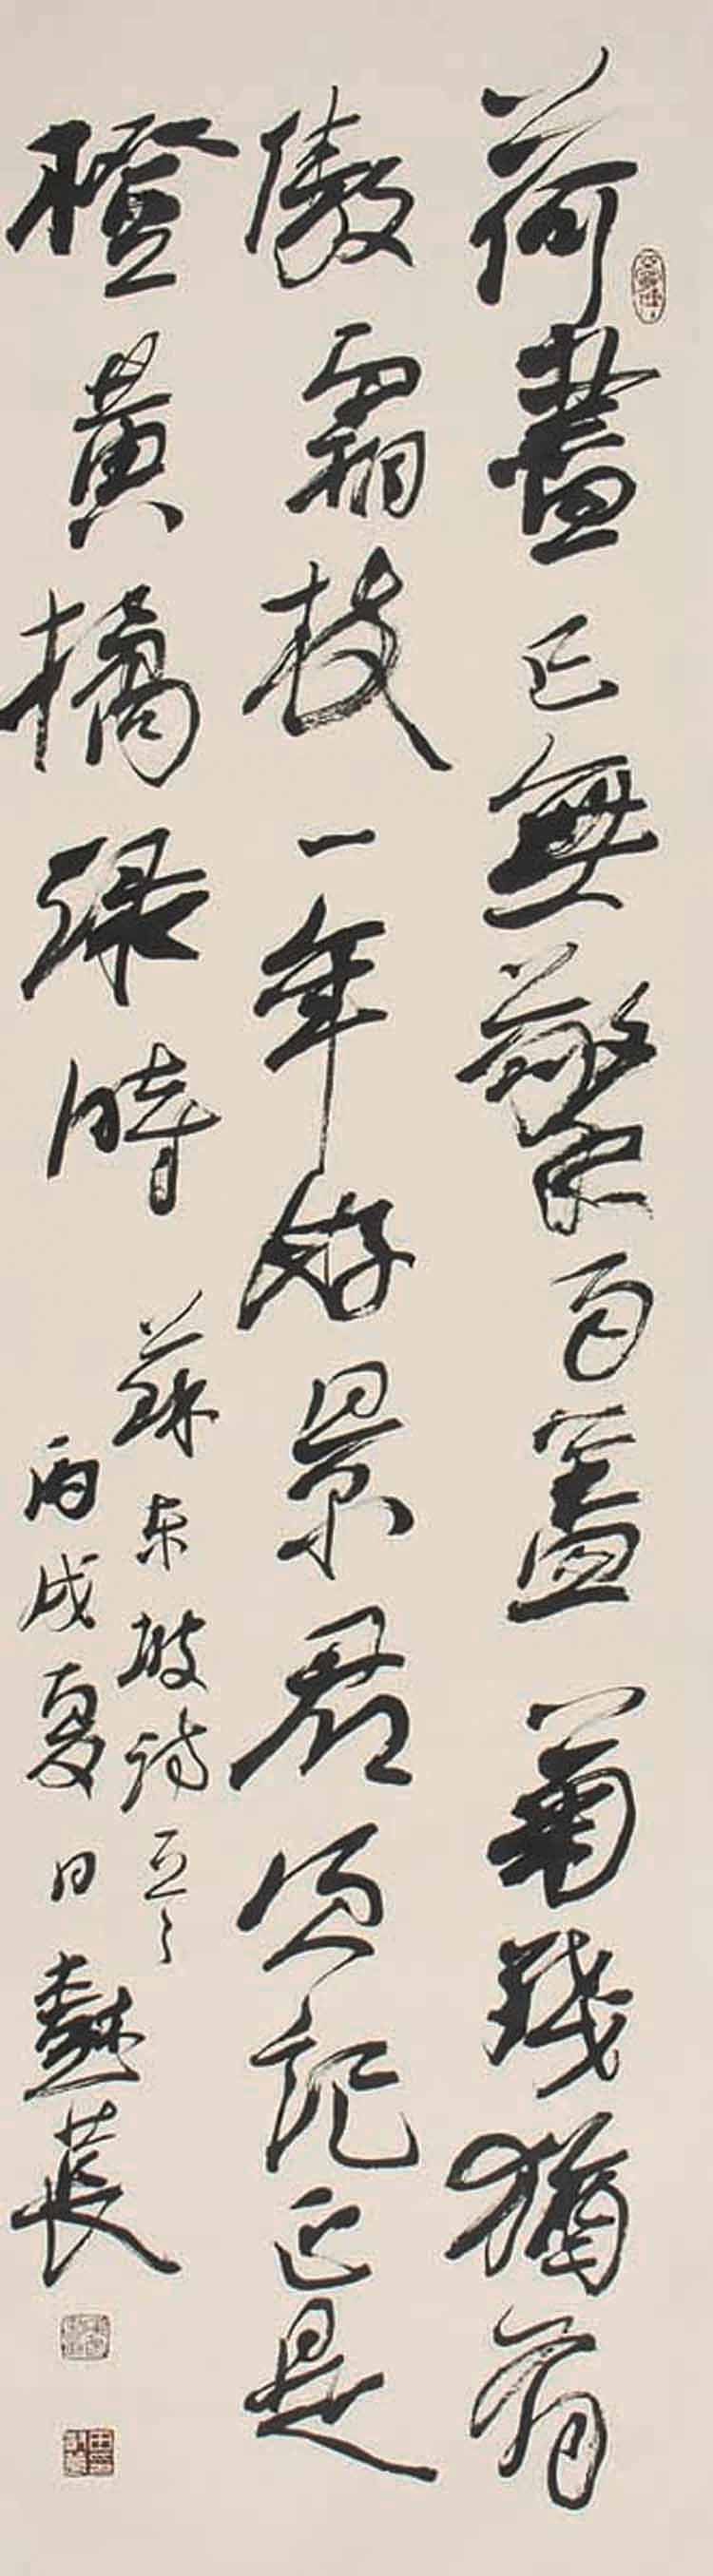 荷盡已無擎雨蓋菊殘猶有
傲霜枝一年好景君須記正是
橙黃橘綠時
蘇東坡詩
丙戌夏日